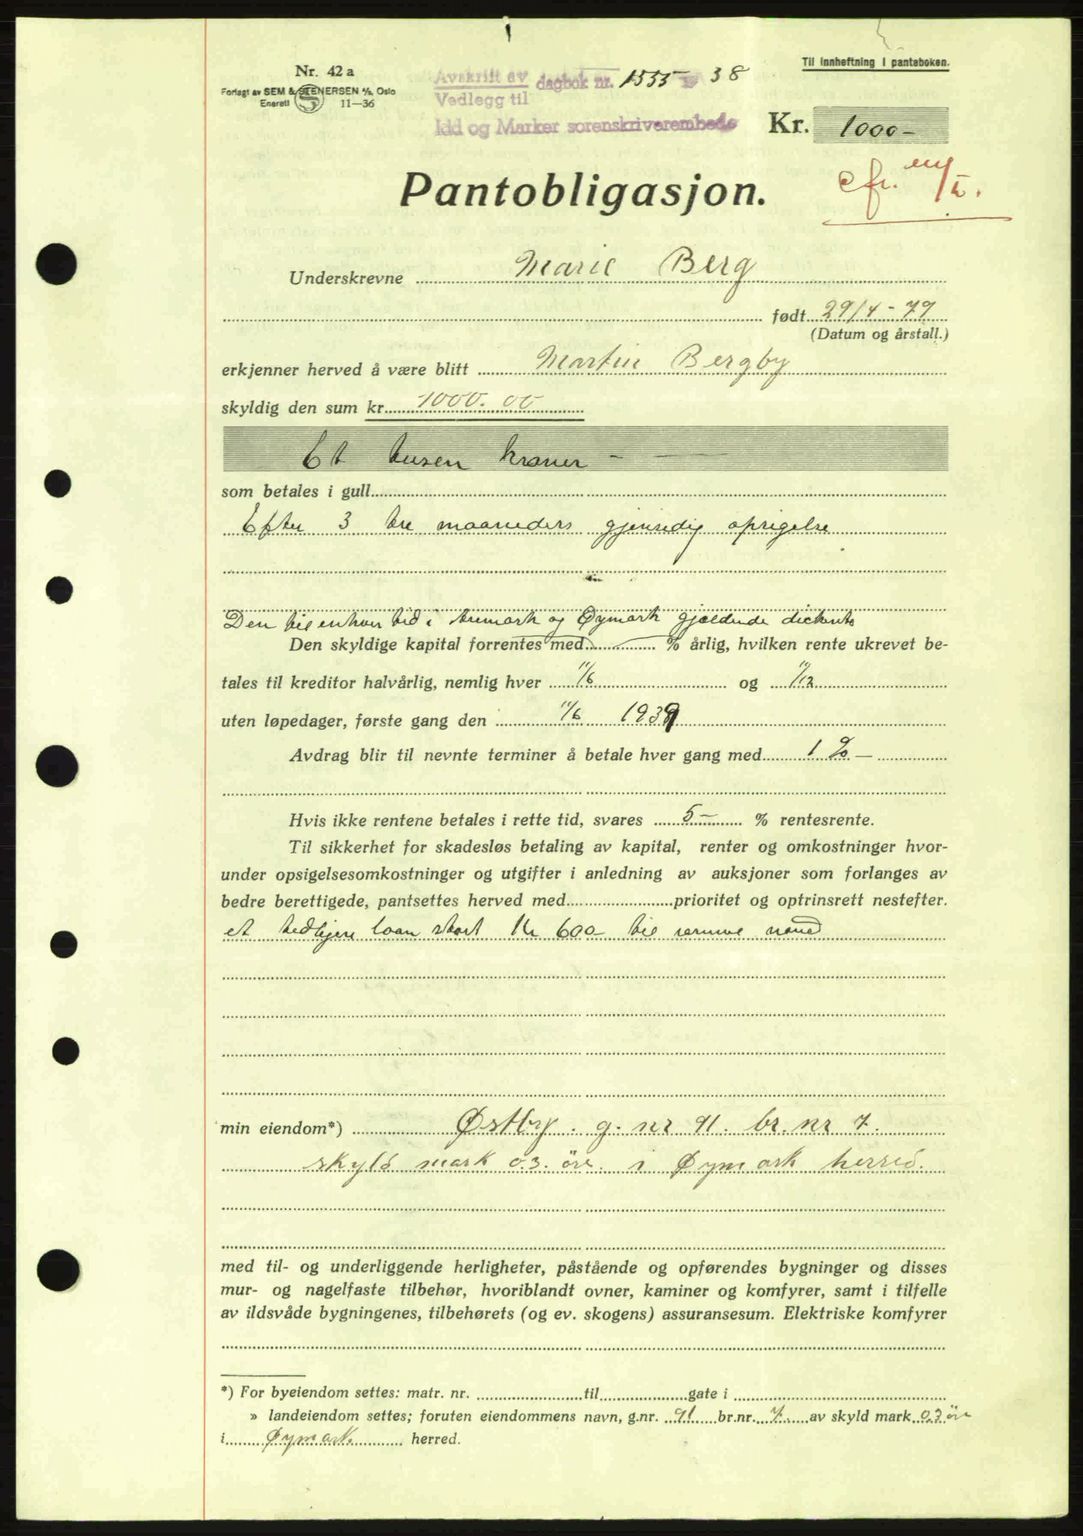 Til innheftning i panteboken.
Nr. 42 a
Forlagt av SEM & STENERSEN A/S, Oslo
Enerett S 11-36
Avskrift av
Vedlegg til dagbok nr. 1555 19 38
Idd og Marker sorenskriverembede
Kr. 1000 -
cfr.
Pantobligasjon.
Underskrevne Marie Berg
født 29/4 - 79
(Datum og årstall.)
erkjenner herved å være blitt Martin Bergby
skyldig den sum kr. 1000.00
Et tusen kroner - —
som betales i gull
Efter 3 tre maaneders gjensidig opsigelse
Den til enhver tid i Aremark og Øymark gjeldende diskonto
Den skyldige kapital forrentes med % årlig, hvilken rente ukrevet be-
tales til kreditor halvårlig, nemlig hver 11/6 og 11/12
uten løpedager, første gang den 11/6 1939
Avdrag blir til nevnte terminer å betale hver gang med 1 % —
Hvis ikke rentene betales i rette tid, svares 5 — % rentesrente.
Til sikkerhet for skadesløs betaling av kapital, renter og omkostninger hvor-
under opsigelsesomkostninger og utgifter i anledning av auksjoner som forlanges av
bedre berettigede, pantsettes herved med prioritet og optrinsrett nestefter.
et tidligere laan stort Kr 600 til samme mand
min eiendom*) Østby. g. nr 91. br. nr 7.
skyld mark 0.3. öre. i Øymark herred.
med til- og underliggende herligheter, påstående og opførendes bygninger og disses
mur- og nagelfaste tilbehør, hvoriblandt ovner, kaminer og komfyrer, samt i tilfelle
av ildsvåde bygningenes, tilbehørets (og ev. skogens) assuransesum. Elektriske komfyrer
*) For byeiendom settes: matr. nr. til gate i
» landeiendom settes; foruten eiendommens navn, g.nr. 91 br.nr. 7. av skyld mark 0.3 öre
i Øymark. herred.